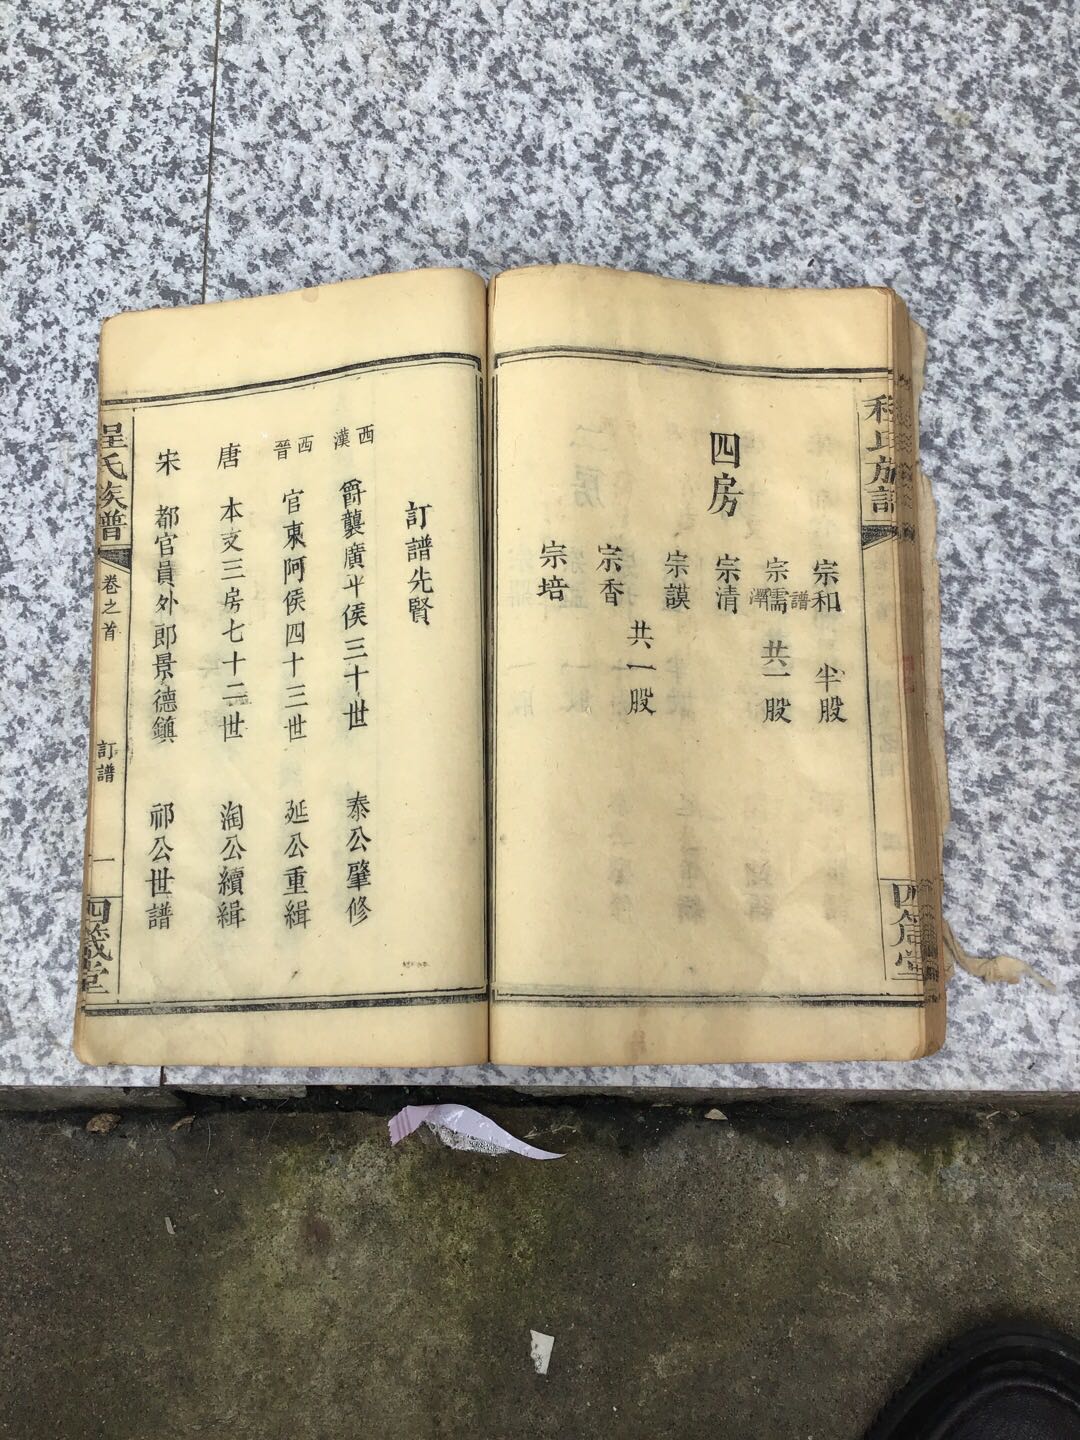 程氏族譜
宗和 半股
宗儒譜澤 共一股
四房
宗清
宗謨
共一股
宗香
宗培
四箴堂
訂譜先賢
西漢 爵襲廣平侯三十世 泰公肇修
西晉 官東阿侯四十三世 延公重緝
唐 本支三房七十二世 淘公續緝
宋 都官員外郎景德鎮 祁公世譜
程氏族譜 卷之首 訂譜 一 四箴堂